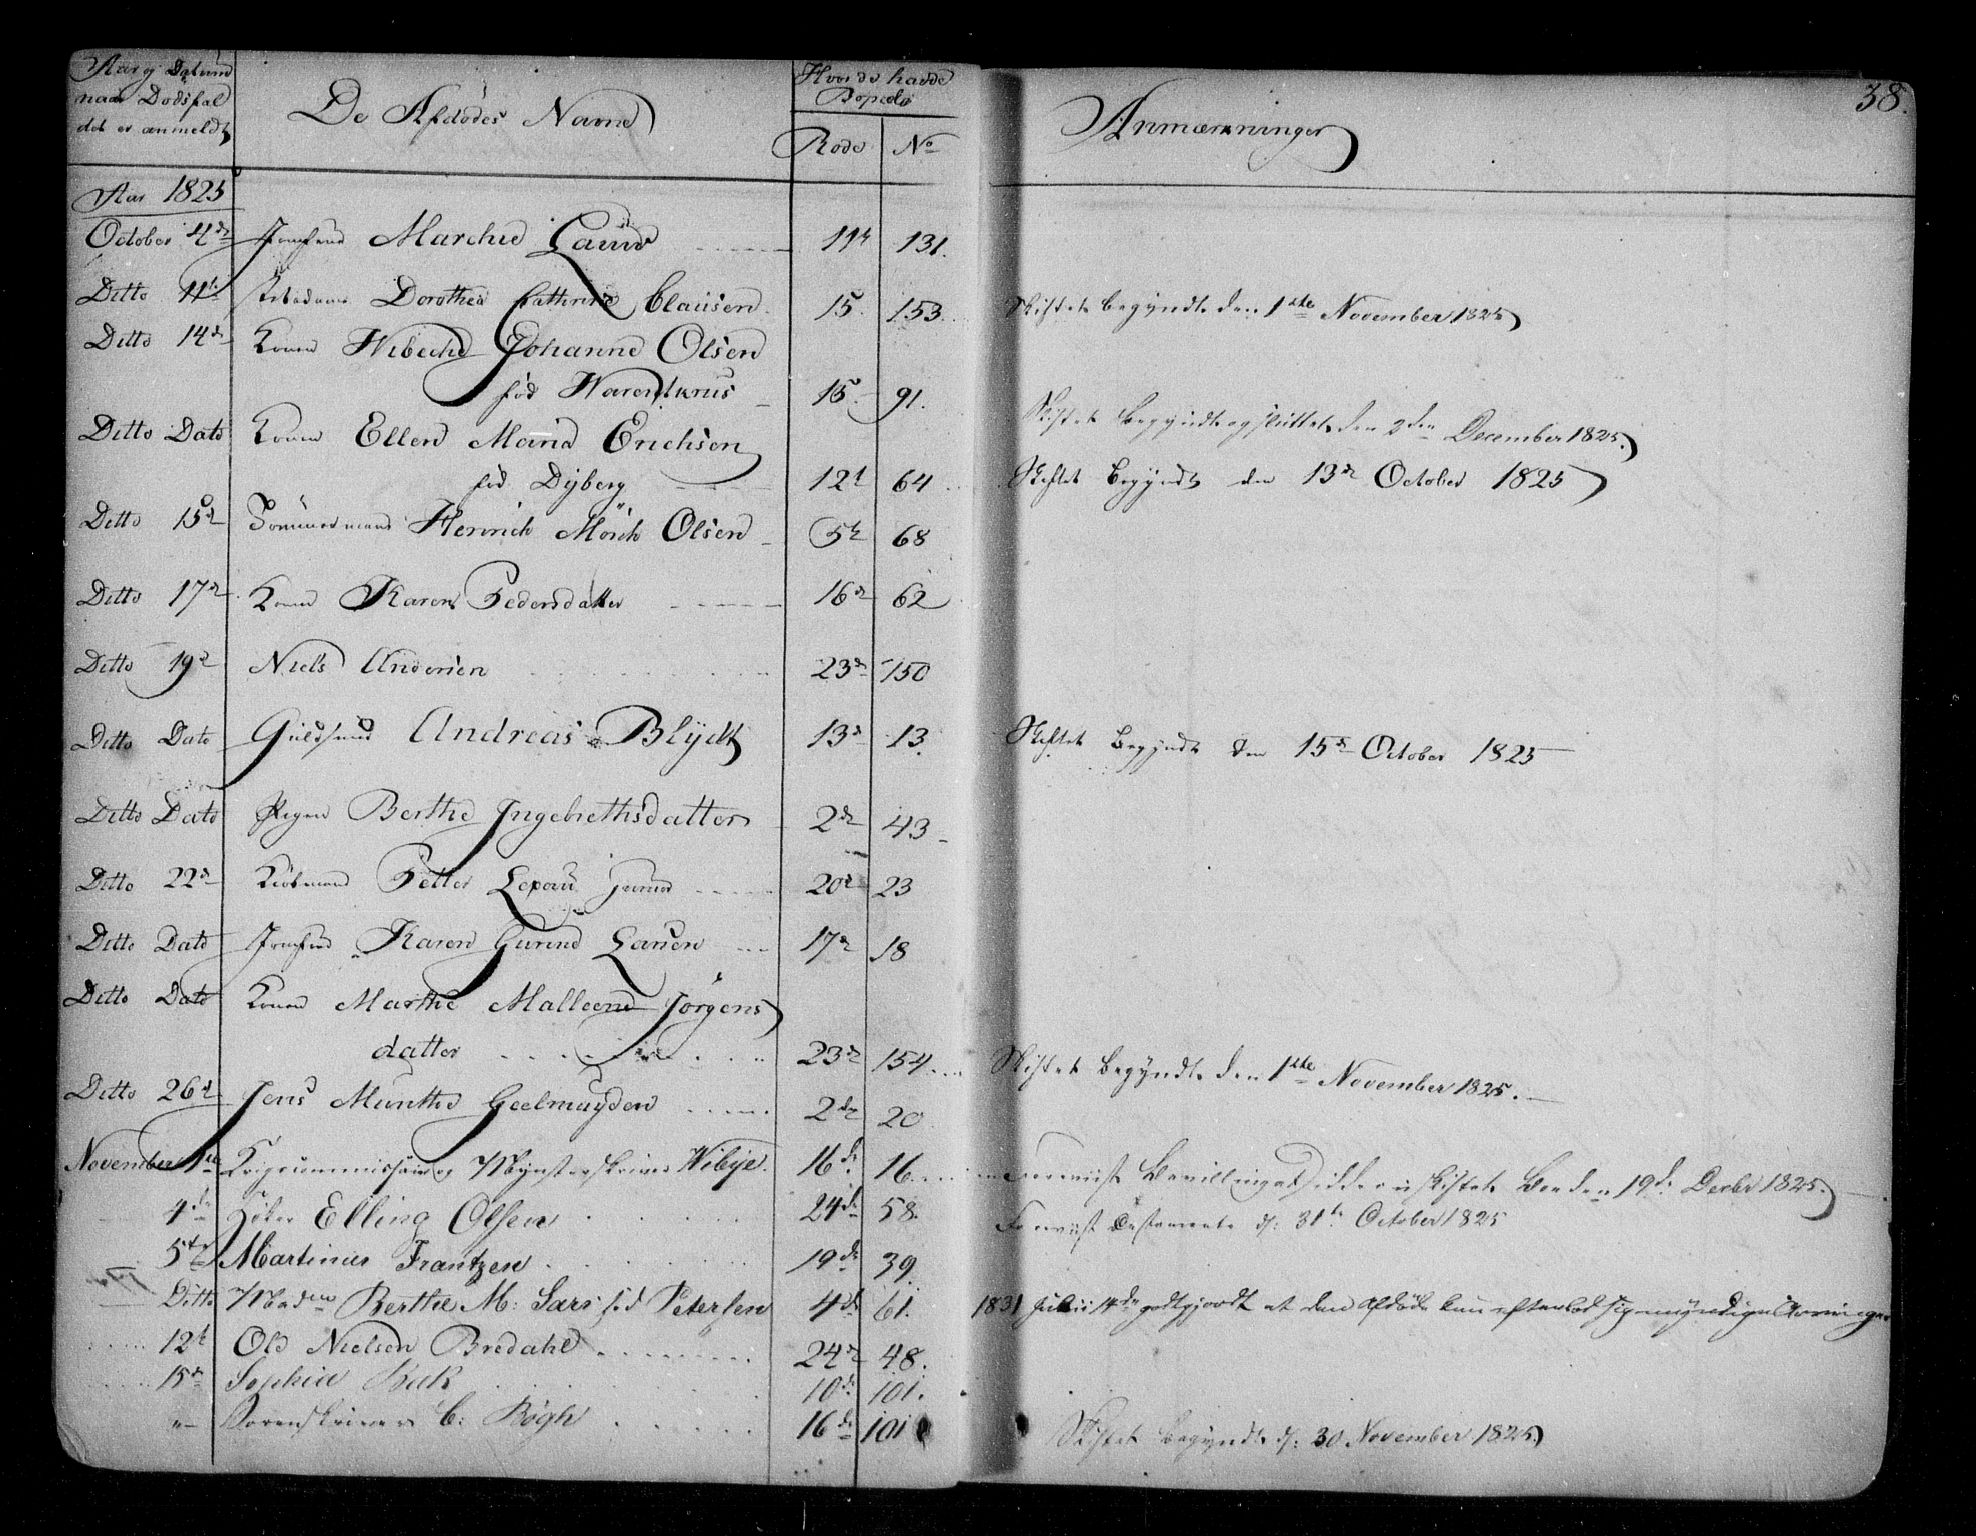 Aar og Datum
naar Dødsfal
det er anmeldt
De Afdødes Navne
Hvor de havde
Bopæle
Rode No
Anmærkninger
38.
Aar 1825
October 4de Jomfrue Marche Lauw 11te 131.
Ditto 11te Dorothea Cathrine Clausen 15. 153. Skiftet begyndt den 1ste November 1825
Ditto 14de Konen Wibeche Johanne Olsen
fød Warentkrus 15. 91. Skiftet begyndt og sluttet den 2den December 1825.
Ditto Dato Konen Ellen Maria Erichsen
fød Dyberg 12te 64 Skiftet begyndt den 13de October 1825
Ditto 15de Tømmermand Henrich Mörch Olsen 5te 68
Ditto 17de Konen Karen Pedersdatter 16de 62
Ditto 19de Niels Andersen 23de 150
Ditto Dato Guldsmed Andreas Blydt 13de 13. Skiftet begyndt den 15de October 1825
Ditto Dato Pigen Berthe Ingebrethsdatter 2de 43
Ditto 22de Kiøbmand Petter Lexau Junior 20de 23
Ditto Dato Jomfrue Karen Gurine Larsen 17de 18
Ditto Dato Konen Marthe Malleene Jörgens
datter 23de 154 Skiftet begyndt den 1ste November 1825.
Ditto 26de Jens Munthe Geelmuyden 2de 20
November 1ste Krigscommissair og Mynsterskriver Wibye. 16de 16. Foreviist Bevilling at sidde i uskiftet Boe den 19de Decbr 1825.
4de Høker Elling Olsen 24de 58. Foreviist Testamente d: 31te October 1825
5te Martinus Frantzen 19de 39.
Ditto Madme Berthe M: Sars fød Petersen 4de 61. 1831 Julii 14de godtgjordt at den Afdøde kun efterlod sig myndige Arvinger
12te Ole Nielsen Bredahl 24de 48.
15de Sophie 10de 101.
" Sorenskriver C: Bøgh 16de 101 Skiftet begyndt d: 30 November 1825